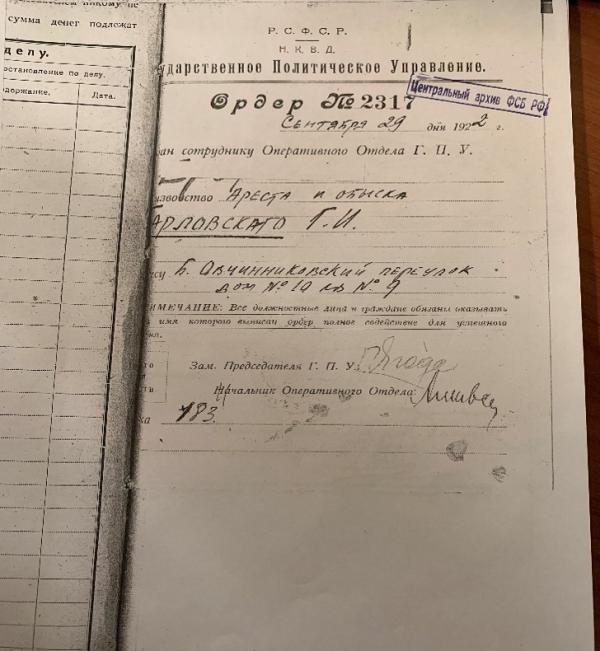 никому не
сумма денег подлежат
делу.
остановление по делу.
одержание.
Дата.
Р. С. Ф. С. Р.
Н. К. В. Д.
сударственное Политическое Управление.
Центральный архив ФСБ РФ
Ордер № 2317
Сентября 29 дня 1922 г.
ан сотруднику Оперативного Отдела Г. П. У.
изводство Ареста и обыска
АРЛОВСКАГО Г. И.
су Б. Овчинниковский переулок
дом № 10 кв № 9
ИМЕЧАНИЕ: Все должностные лица и граждане обязаны оказывать
имя которого выписан ордер полное содействие для успешного
Зам. Председателя Г. П. У. Ягода
Начальник Оперативного Отдела:
ка 183